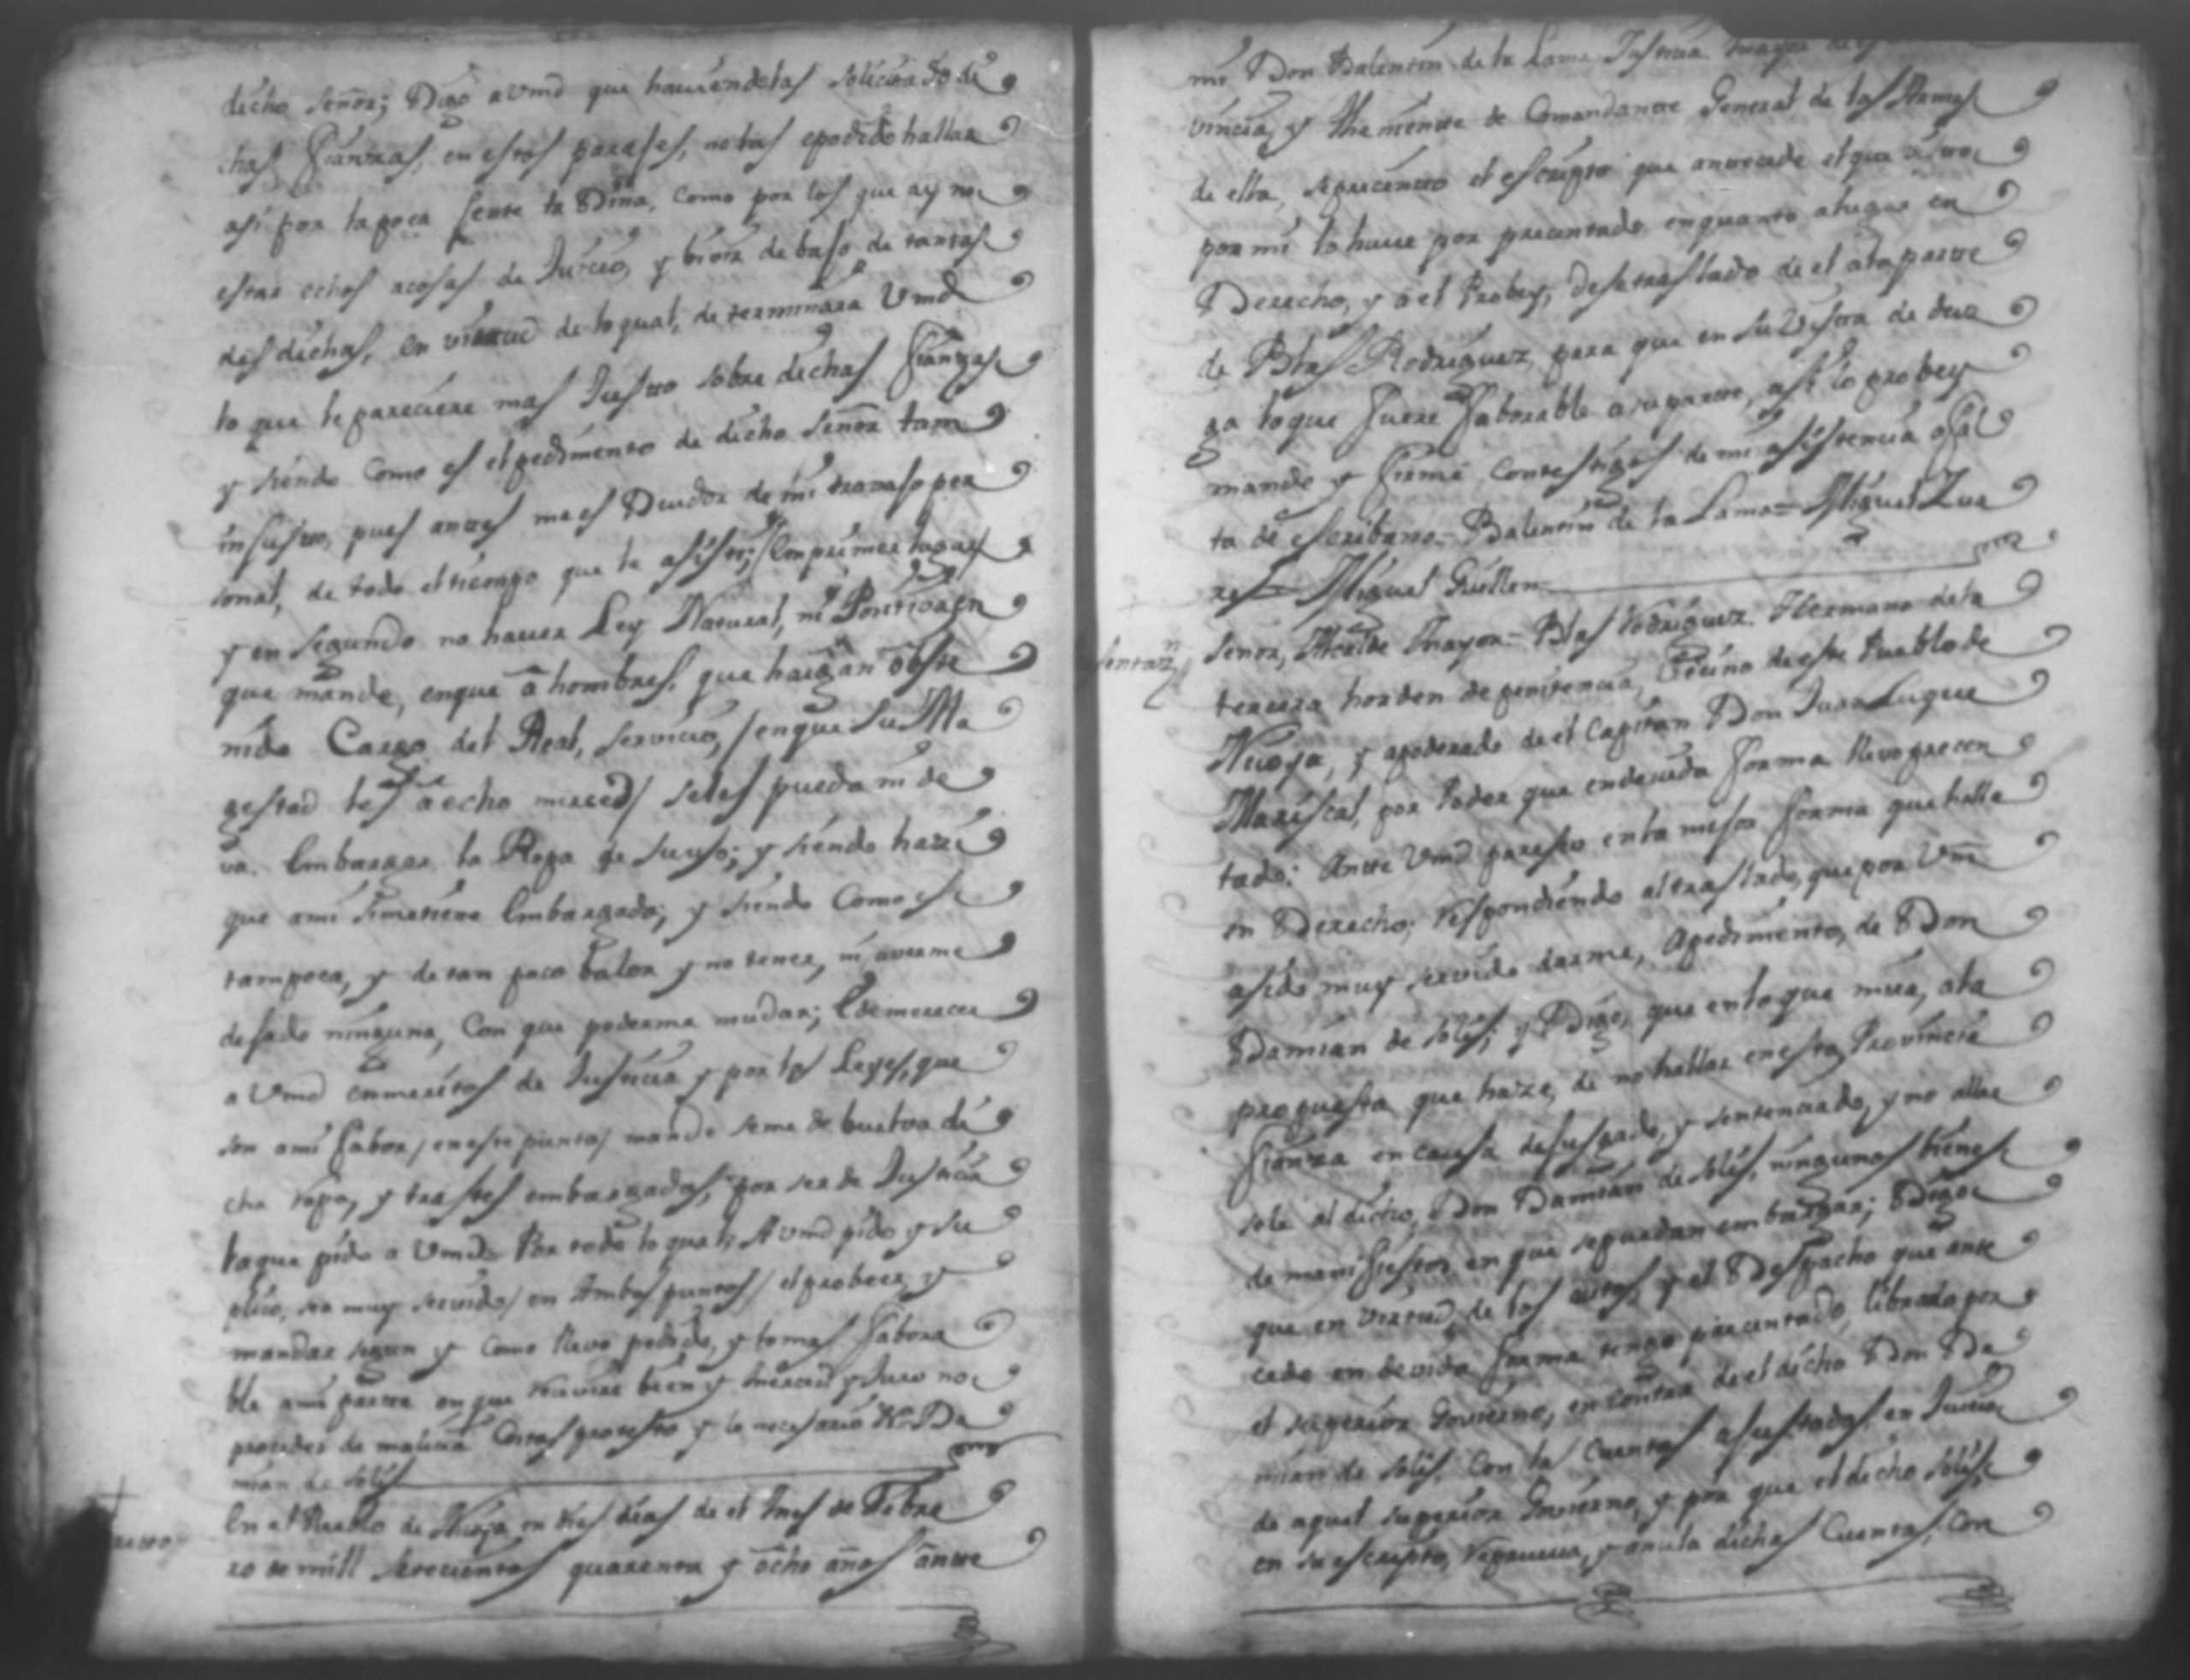 dicho señor; Digo a Vmd que haviendolas solicitado di
chas fianzas, en estos parajes, no las e podido hallar
asi por la poca jente la Dina, como por los que ay no
estar echos acosas de Juicio, y bivir de bajo de tantas
des dichas, en virtud de lo qual, de terminara Vmd
lo que le pareciere mas Justo sobre dichas fianzas
y siendo como es el pedimento de dicho señor tam
injusto, pues antes me es Deudor de mi travajo per
sonal, de todo el tiempo que le asisti; en primer lugar
y en segundo no haver Ley Natural, ni Positiva en
que mande, enque â hombres, que haigan obte
nido Cargo del Real, servicio, / enque su Ma
gestad les â echo merced / seles pueda ni de
va embargar la Ropa de su uso; y siendo hazi
que ami seme tiene embargada; y siendo como es
tampoca, y de tan poco balor y no tener, ni averme
dejado ninguna, con que poderme mudar; E de merecer
a Vmd enmeritos de Justicia y por las Leyes, que
son ami fabor / en este punto / mande seme de buelva di
cha ropa, y trastes embargados, por ser de Justicia
la que pido a Vmd. Por todo lo qual; A Vmd pido y su
plico, sea muy servido / en Ambos puntos / el probeer, y
mandar segun y como llevo pedido, y lo mas fabora
ble ami parte en que recivire bien y merced y Juro no
proceder de malicia Costas protesto y lo necesario Va Da
mian de Solis
En el Pueblo de Nicoya en tres dias de el mes de Febre
ro de mill setecientos quarenta y ôcho años ante
mi Don Balentin de la Lama Justicia mayor de
vincia, y Theniente de Comandante General de las Armas
de ella, se precento el escripto que antecede el que visto
por mi lo huve por precentado enquanto a lugar en
Derecho, y a el Probey, dese traslado de el ala parte
de Blas Rodriguez, para que en su Vista de duz
ga lo que fuere faborable a su parte, asi lo probey
mande y firme con testigos de mi asistencia a fal
ta de escribano = Balentin de la Lama = Miguel Zua
res = Miguel Guillen
Señor, Alcalde mayor = Blas Rodriguez Hermano de la
tercera horden de penitencia, Vecino de este Pueblo de
Nicoya, y apoderado de el Capitan Don Juan Luque
Mariscal, por Poder que endevida forma llevo precen
tado: Ante Vmd paresco en la mejor forma que halla
en Derecho; respondiendo al traslado, que por Vm
asido muy servido darme, Apedimento, de Don
Damian de Solis; y Digo, que en lo que mira, a la
propuesta que haze, de no hallar en esta Provincia
fianza en causa de Jusgado, y sentenciado, y no allar
sele al dicho, Don Damian de Solis, ningunos bienes
de manifiestos en que se puedan embargar; Digo
que en virtud, de los autos, y el Despacho que ante
cede en devida forma tengo precentado, librado por
el superior Govierno, en contra de el dicho Don Da
mian de Solis, con la Cuentas ajustadas, en Juicio
de aquel superior Govierno, y por que el dicho Solis,
en su escripto, repruena, y anula dichas Cuentas, con